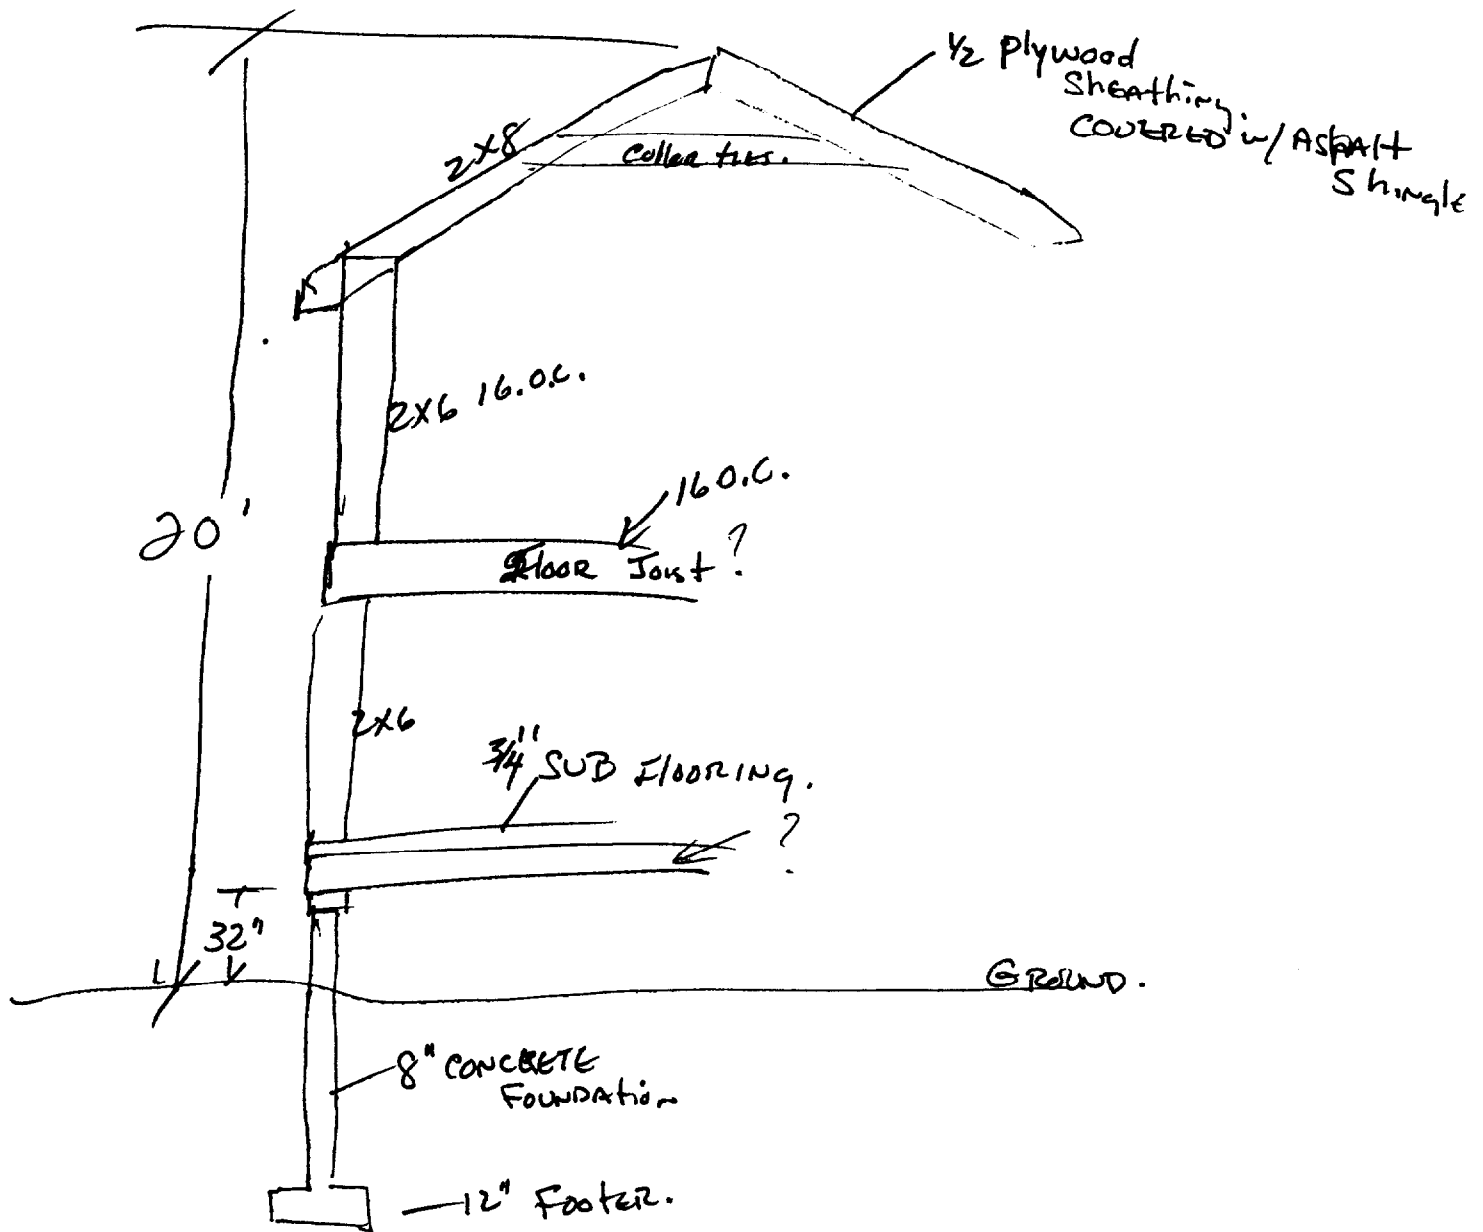 1/2 Plywood
Sheathing
COVERED w/ ASPAlt
Shingle
2x8
Collar ties.
2x6 16.O.C.
16 O.C.
20'
Floor Joist ?
2x6
3/4" SUB FlOORING.
?
32"
GROUND.
8" CONCRETE
FOUNDAtion
12" Footer.